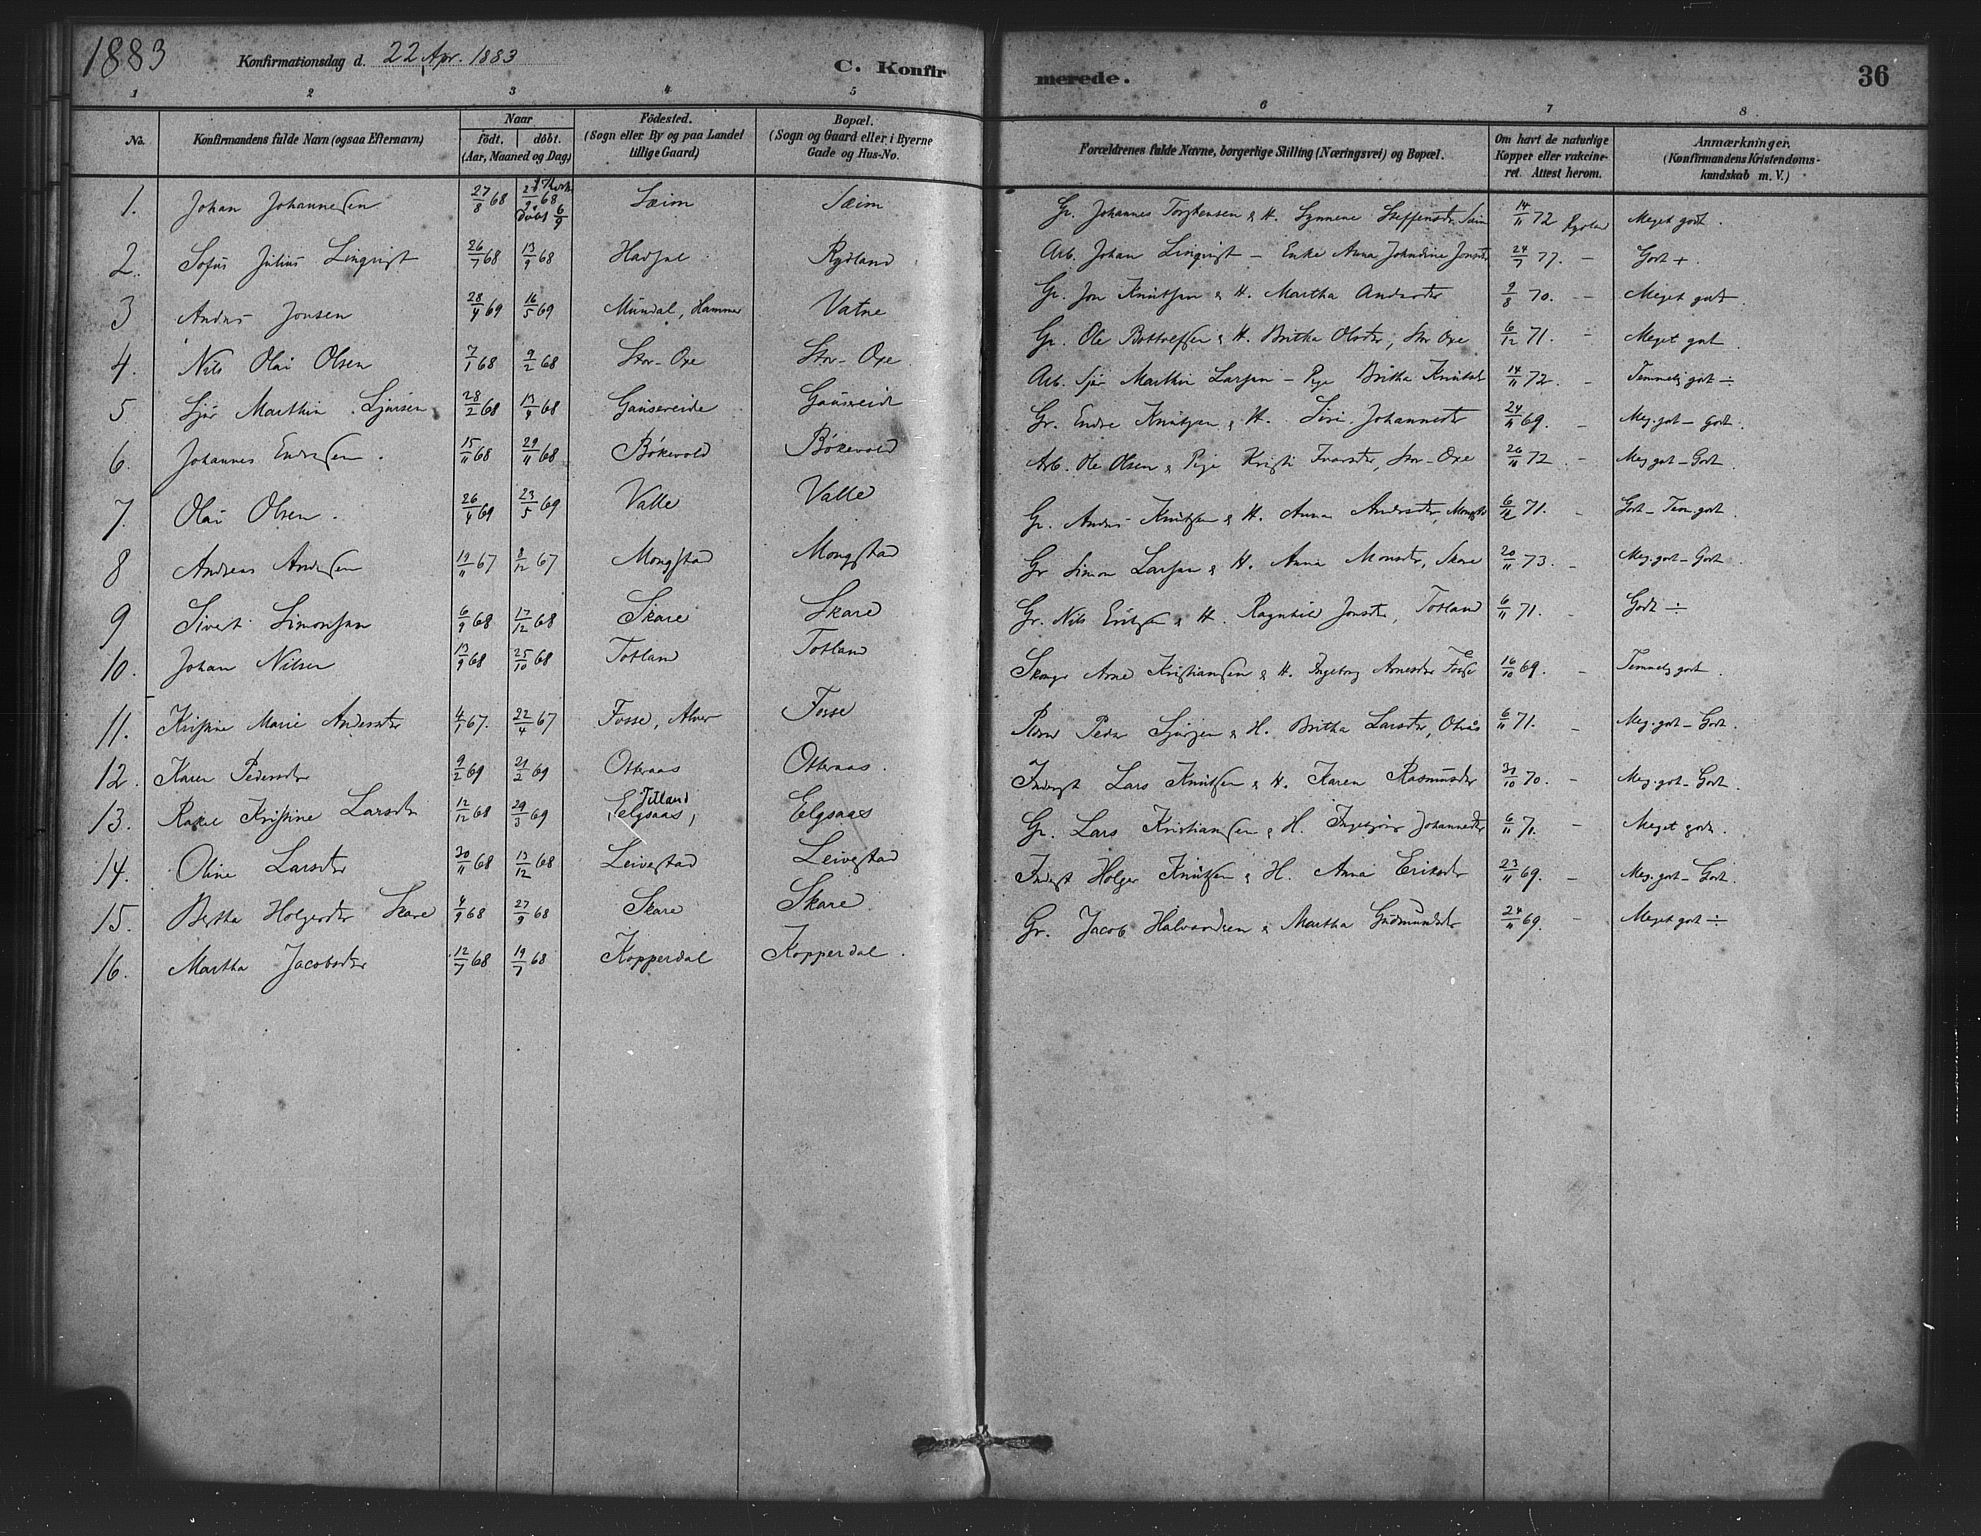 1883 Konfirmationsdag d. 22 Apr. 1883 C. Konfirmerede. 36
1 2 3 4 5 6 7 8
No. Konfirmandens fulde Navn (ogsaa Efternavn) Naar födt, döbt. (Aar, Maaned og Dag) Födested. (Sogn eller By og paa Landet tillige Gaard) Bopæl. (Sogn og Gaard eller i Byerne Gade og Hus-No. Forældrenes fulde Navne, borgerlige Stilling (Næringsvei) og Bopæl. Om havt de naturlige Kopper eller vakcineret. Attest herom. Anmærkninger. (Konfirmandens Kristendomskundskab m. V.)
1. Johan Johannessen 27/8 68 68 döbt 6/9 Sæim Sæim Gr. Johannes & H. Steffensdtr 14/11 72 Meget godt.
2. Sofus Julius Linqvist 26/7 68 13/9 68 Rydland Arb. Johan Linqvist – Enke Anna 24/7 77. – Godt +.
3 Anders Jonsen 28/4 69 16/5 69 Mundal, Hammer Vatne Gr. Jon Knutsen & H. Martha Andersdtr 9/8 70. – Meget godt.
4. Nils Olai Olsen 7/1 68 9/2 68 Stor-Oxe Stor-Oxe Gr. Ole & H. Britha Olsdtr, Stor Oxe 6/12 71. – Meget godt.
5 Sjur Marthin Sjursen 28/2 68 13/4 68 Gausereide Gausereide Arb. Sjur Marthin Larsen – Pige Britha Knutsdtr 14/11 72. – Temmelig godt ÷
6. Johannes Endresen. 15/11 68 29/11 68 Bökevold Bökevold Gr. Endre Knutsen & H. Siri Johannesdtr 24/11 69. – Meg. godt – godt.
7. Olai Olsen. 26/4 69 23/5 69 Valle Valle Arb. Ole Olsen & Pige Kristi Ivarsdtr, Stor-Oxe 72. – Meg godt – Godt.
8 Andreas Andersen 19/11 67 8/12 67 Mongstad Mongstad Gr. Anders Knutsen & H. Anna Andersdtr, Mongstd 6/12 71. – Godt – Tem. godt.
9 Sivert Simonsen 6/9 68 68 Skare Skare Gr Simon Larsen & H. Anna Monsdtr, Skare 20/11 73. – Meg. godt – Godt
10. Johan Nilsen 13/9 68 25/10 68 Totland Totland Gr. Nils Eriksen & H. Ragnhild Jonsdtr, Totland 6/11 71. – Godt ÷
11. Kristine Marie Andersdtr 4/1 67. 22/4 67 Fosse, Alver Fosse Arne Kristiansen & H. Ingeborg Arnesdtr Fosse 16/10 69. – Temmelig godt.
12. Karen Pedersdtr 9/2 69 21/2 69 Otteraas Otteraas. Peder Sjursen & H. Britha Larsdtr, 6/11 71. – Meg. godt – Godt.
13. Rakel Kristine Larsdtr 12/12 68 29/3 69 Eelgsaas, Eelgsaas Inderst Lars Knutsen & H. Karen Rasmusdtr 31/10 70. – Meg. godt – Godt.
14. Oline Larsdtr 30/11 68 13/12 68 Leivestad Leivestad Gr. Lars Kristiansen & H. Ingebjör Johannesdtr 6/11 71. – Meget godt.
15. Bertha Holgersdtr Skare 4/9 68 27/9 68 Skare Skare Inderst Holger Knutsen & H. Anna Eriksdtr 23/11 69. – Meg. godt – Godt.
16. Martha Jacobsdtr 12/7 68 19/7 68 Kopperdal Kopperdal. Gr. Jacob Halvardsen & Martha Gudmundsdtr 24/11 69. – Meget godt ÷